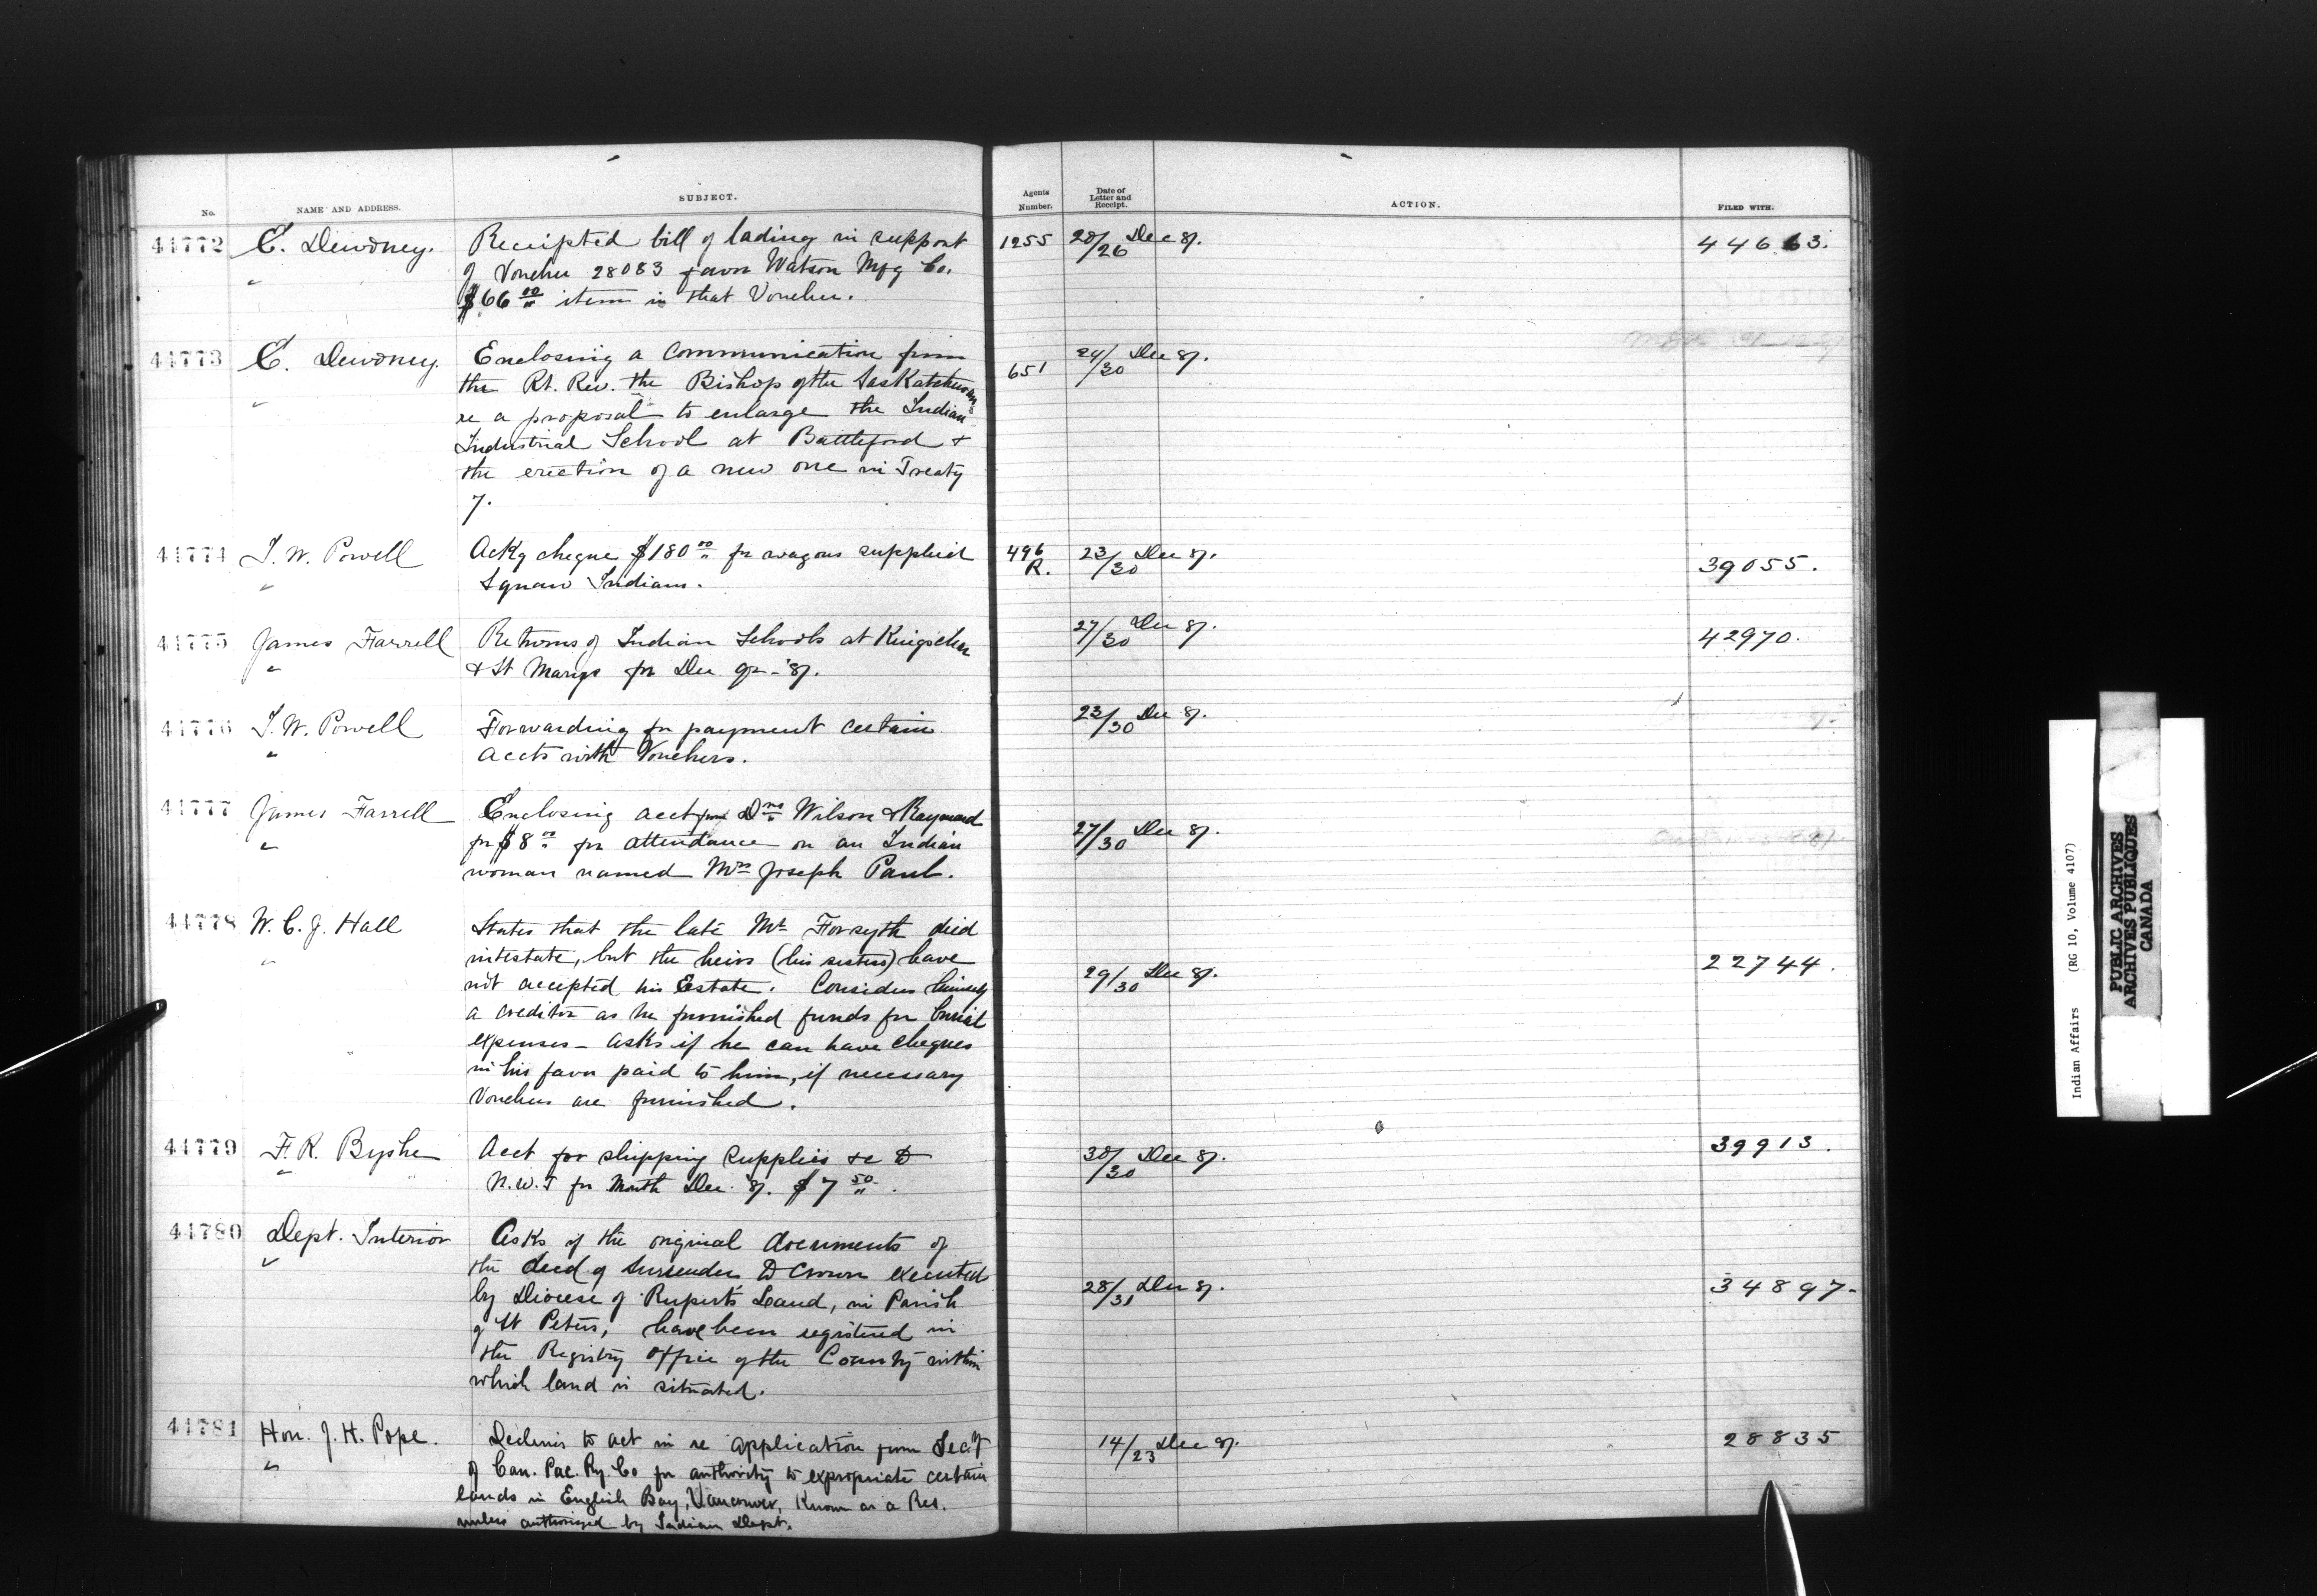 No. NAME AND ADDRESS. SUBJECT. Agents Number. Date of Letter and Receipt. ACTION. FILED WITH.
44772 E. Dewdney. Receipted bill of lading in support 1255 28/26 Dec 87. 44663.
" of Voucher 28083 favor Watson Mfg Co.
$66 00/" item in that Voucher.
44773 E. Dewdney. Enclosing a communication from 24/30 Dec 87.
the Rt. Rev. the Bishop of the Saskatchewan 651
" re a proposal to enlarge the Indian
Industrial School at Battleford &
the erection of a new one in Treaty
7.
44774 I. W. Powell Ackg cheque $180 00/" for wagons supplied 496 R. 23/30 Dec 87. 39055.
" Squaw Indians.
44775 James Farrell Returns of Indian Schools at Kingsclear 27/30 Dec 87. 42970.
" & St Marys for Dec qr - '87.
44776 I. W. Powell Forwarding for payment certain 23/30 Dec 87.
" accts with Vouchers.
44777 James Farrell Enclosing acct from Drs Wilson & Raymond 27/30 Dec 87.
" for $8 00/" for attendance on an Indian
woman named Mrs Joseph Paul.
44778 W. C. J. Hall States that the late Mr Forsyth died
" intestate, but the heirs (his sisters) have 22744.
not accepted his Estate. Considers himself 29/30 Dec 87.
a creditor as he furnished funds for burial
expenses - asks if he can have cheques
in his favor paid to him, if necessary
Vouchers are furnished.
44779 F. R. Byshe Acct for shipping supplies &c to 30/30 Dec 87. 39913.
" N.W.T for Month Dec. 87. $7 50/".
44780 Dept. Interior Asks if the original documents of
" the deed of surrender to Crown executed
by Diocese of Rupert's Land, in Parish 28/31 Dec 87. 34897-
of St Peters, have been registered in
the Registry office of the County within
which land is situated.
44781 Hon. J. H. Pope. Declines to act in re application from Sec'y 14/23 Dec 87. 28835
" of Can. Pac. Ry. Co for authority to expropriate certain
lands in English Bay, Vancouver, Known as a Res.
unless authorized by Indian Dept.
Indian Affairs (RG 10, Volume 4107)
PUBLIC ARCHIVES
ARCHIVES PUBLIQUES
CANADA